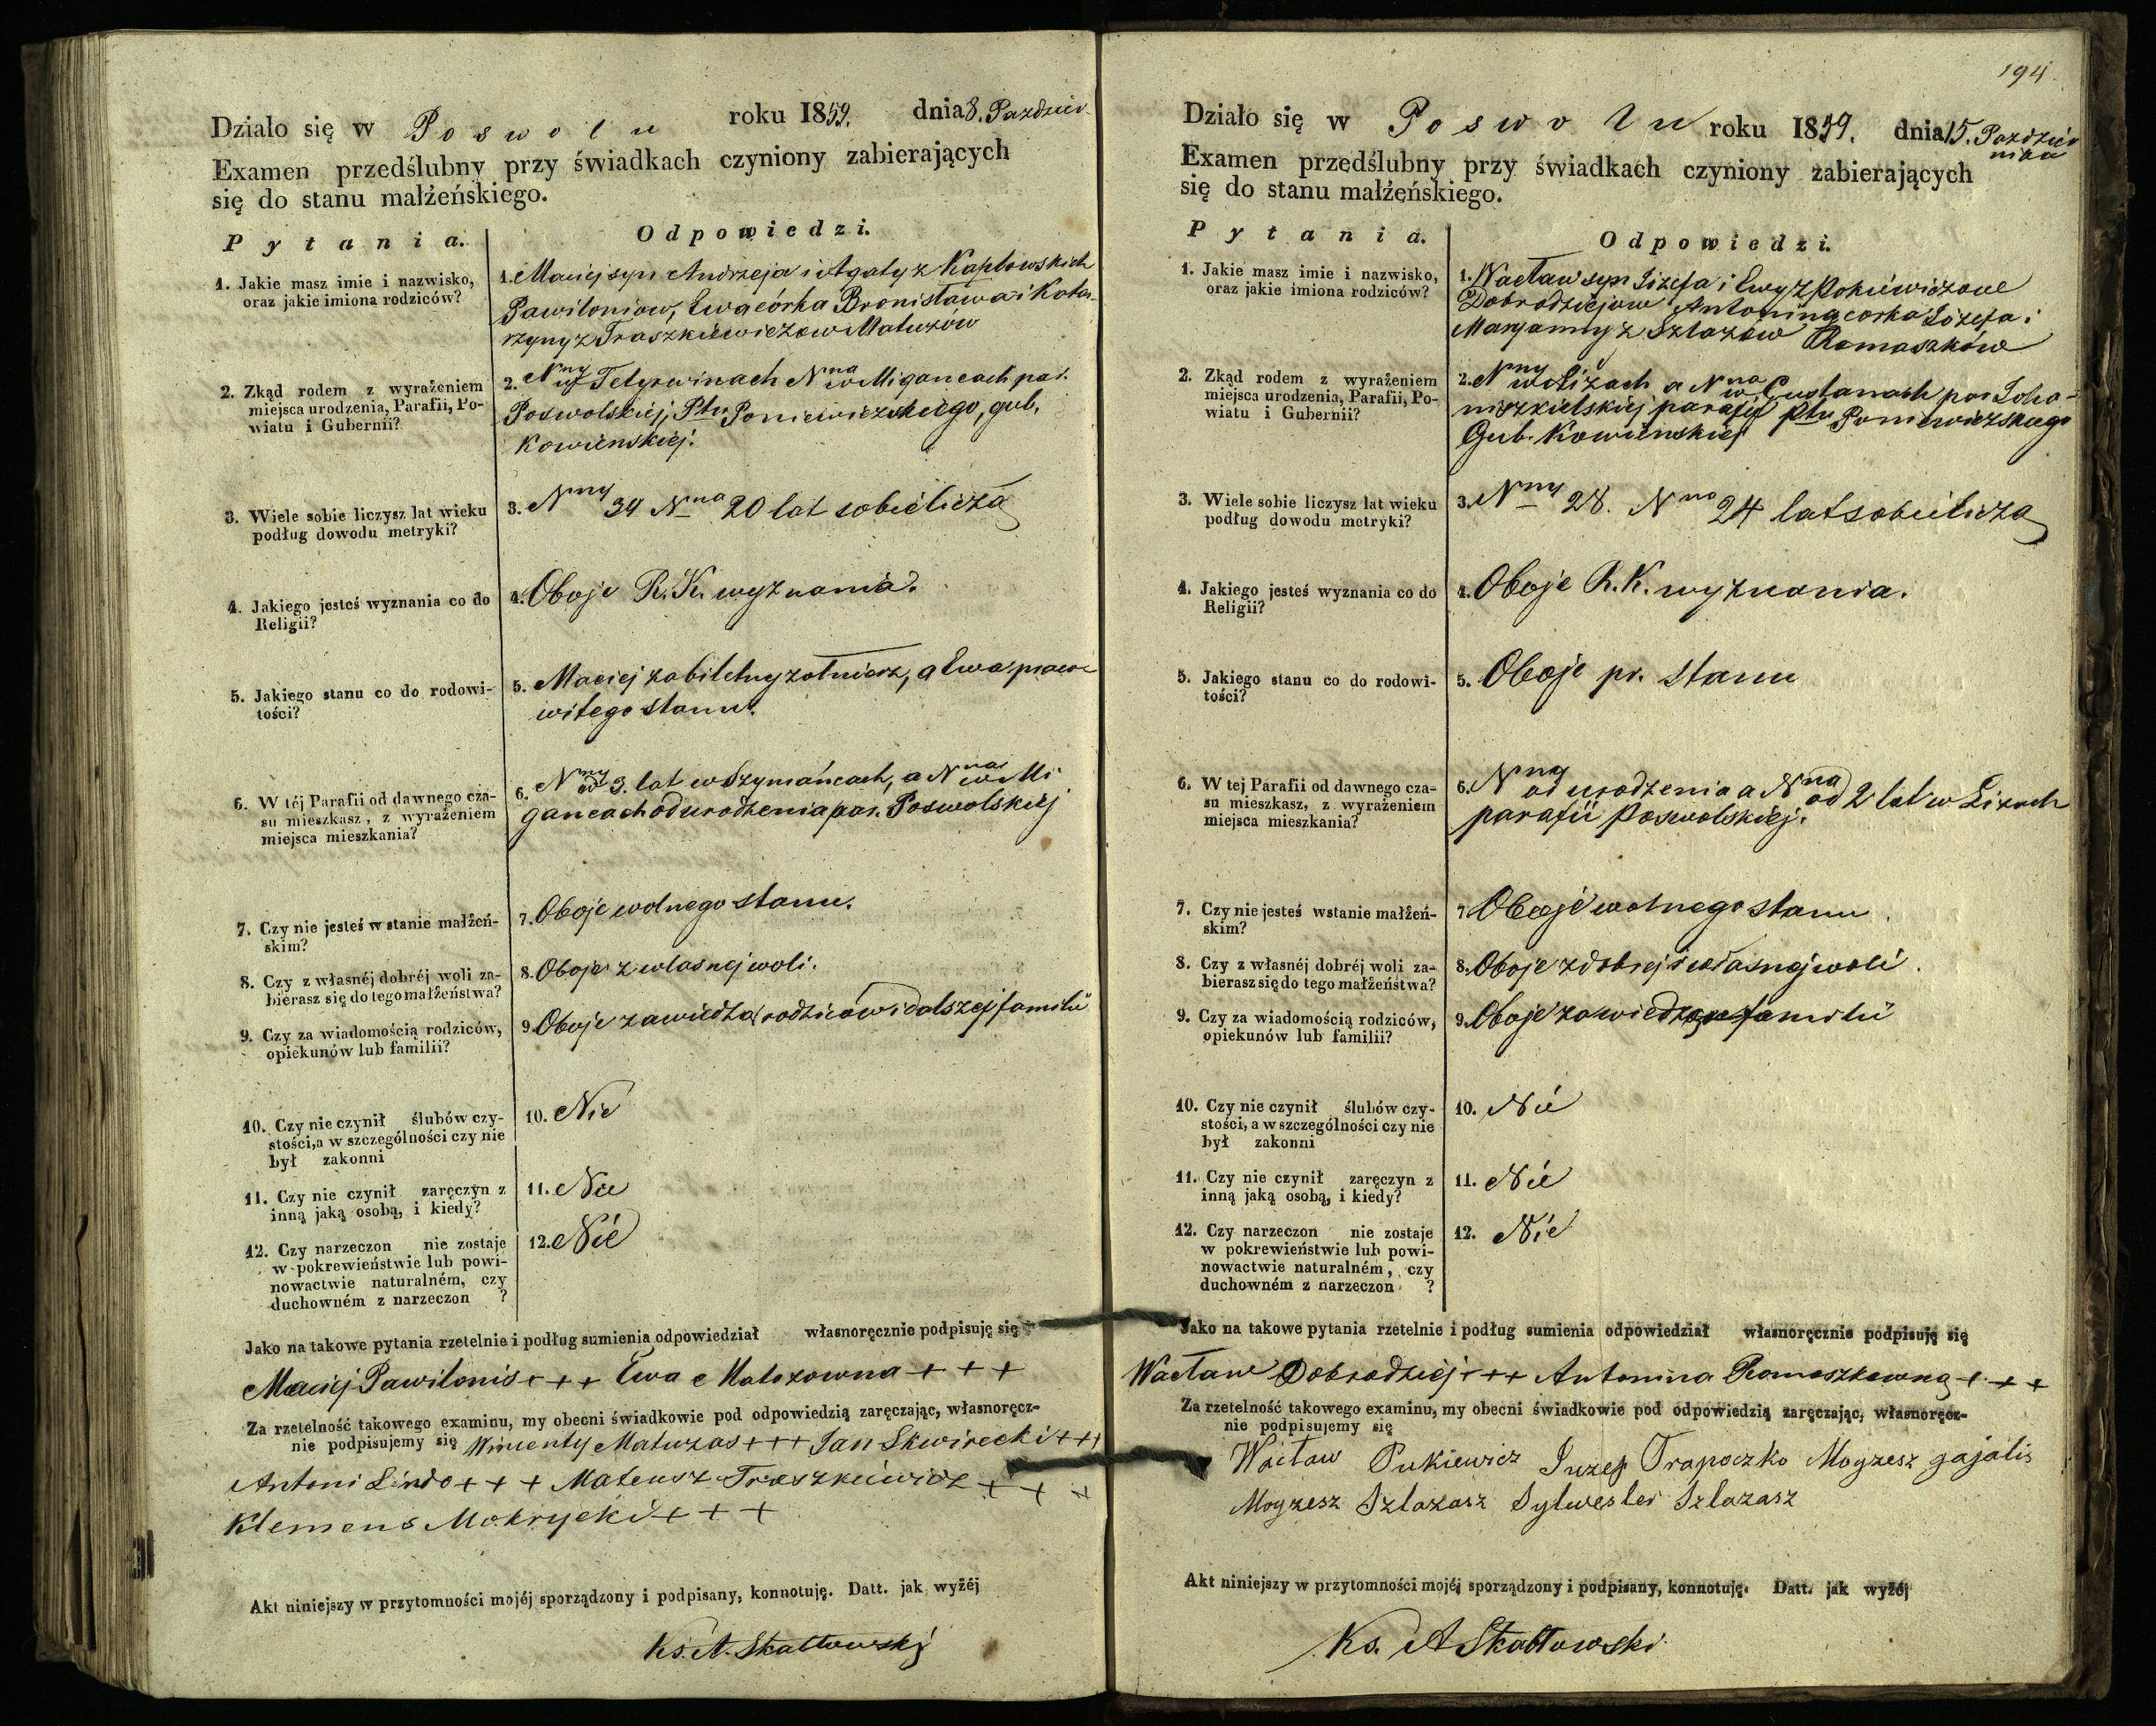 Działo się w Poswolu roku 1859. dnia 8. Paździer.
Examen przedślubny przy świadkach czyniony zabierających
się do stanu małżeńskiego.
Pytania. Odpowiedzi.
1. Jakie masz imie i nazwisko,
oraz jakie imiona rodziców?
1. Maciej syn Andrzeja i Agaty z Kapłowskich
Pawiloniow, Ewa córka Bronisława i Kata-
rzyny z Traszkiewiczow Matuzów
2. Zkąd rodem z wyrażeniem
miejsca urodzenia, Parafii, Po-
wiatu i Gubernii?
2. Nny w Tetyrwinach Nna w Migancach par.
Poswolskiej, Ptu Poniewiezskiego, gub.
Kowienskiej.
3. Wiele sobie liczysz lat wieku
podług dowodu metryki?
3. Nny 34 Nna 20 lat sobie liczą
4. Jakiego jesteś wyznania co do
Religii?
4. Oboje R. K. wyznania.
5. Jakiego stanu co do rodowi-
tości?
5. Maciej zabiletny zołnierz, a Ewa prawo
witego stanu.
6. W téj Parafii od dawnego cza-
su mieszkasz, z wyrażeniem
miejsca mieszkania?
6. Nny od 3. lat w Szymańcach, a Nna w Mi
gancach od urodzenia par. Poswolskiej
7. Czy nie jesteś w stanie małżeń-
skim?
7. Oboje wolnego stanu.
8. Czy z własnéj dobréj woli za-
bierasz się do tego małżeństwa?
8. Oboje z własnej woli.
9. Czy za wiadomością rodziców,
opiekunów lub familii?
9. Oboje za wiedzą rodziców i dalszej familii
10. Czy nie czynił ślubów czy-
stości, a w szczególności czy nie
był zakonni
10. Nie
11. Czy nie czynił zaręczyn z
inną jaką osobą, i kiedy?
11. Nie
12. Czy narzeczon nie zostaje
w pokrewieństwie lub powi-
nowactwie naturalném, czy
duchowném z narzeczon ?
12. Nie
Jako na takowe pytania rzetelnie i podług sumienia odpowiedział własnoręcznie podpisuję się
Maciej Pawilonis + + + Ewa Matuzowna + + +
Za rzetelność takowego examinu, my obecni świadkowie pod odpowiedzią zaręczając, własnoręcz-
nie podpisujemy się Wincenty Matuzas + + + Jan Skwirecki + + +
Antoni Lindo + + + Mateusz Traszkiewicz + + +
Klemens Mokrycki + + +
Akt niniejszy w przytomności mojéj sporządzony i podpisany, konnotuję. Datt. jak wyżéj
Ks. A. Skałłowski
194
Działo się w Poswolu roku 1859. dnia 15. Paździer
nika
Examen przedślubny przy świadkach czyniony zabierających
się do stanu małżeńskiego.
Pytania. Odpowiedzi.
1. Jakie masz imie i nazwisko,
oraz jakie imiona rodziców?
1. Wacław syn Józefa i Ewy z Pokiewiczow
Dobrodziejow Antonina corka Józefa i
Maryanny z Szlazów Romaszków
2. Zkąd rodem z wyrażeniem
miejsca urodzenia, Parafii, Po-
wiatu i Gubernii?
2. Nny w Lizach a Nna w Gustanach par Joha-
niszkielskiej parafii Ptu Poniewiezskiego
Gub. Kowienskiej
3. Wiele sobie liczysz lat wieku
podług dowodu metryki?
3. Nny 28. Nna 24 lat sobie liczą
4. Jakiego jesteś wyznania co do
Religii?
4. Oboje R. K. wyznania.
5. Jakiego stanu co do rodowi-
tości?
5. Oboje pr. stanu
6. W tej Parafii od dawnego cza-
su mieszkasz, z wyrażeniem
miejsca mieszkania?
6. Nny od urodzenia a Nna od 2 lat w Lizach
parafii Poswolskiej.
7. Czy nie jesteś wstanie małżeń-
skim?
7. Oboje wolnego stanu
8. Czy z własnéj dobréj woli za-
bierasz się do tego małżeństwa?
8. Oboje z dobrej i własnej woli.
9. Czy za wiadomością rodziców,
opiekunów lub familii?
9. Oboje za wiedzą familii
10. Czy nie czynił ślubów czy-
stości, a w szczególności czy nie
był zakonni
10. Nie
11. Czy nie czynił zaręczyn z
inną jaką osobą, i kiedy?
11. Nie
12. Czy narzeczon nie zostaje
w pokrewieństwie lub powi-
nowactwie naturalném, czy
duchowném z narzeczon ?
12. Nie
Jako na takowe pytania rzetelnie i podług sumienia odpowiedział własnoręcznie podpisuję się
Wacław Dobrodziej + + + Antonina Romaszkowna + + +
Za rzetelność takowego examinu, my obecni świadkowie pod odpowiedzią zaręczając, własnoręcz-
nie podpisujemy się
Wacław Pukiewicz Juzep Trapoczko Moyzesz gajalis
Moyzesz Szlazasz Sylwester Szlazasz
Akt niniejszy w przytomności mojéj sporządzony i podpisany, konnotuję. Datt. jak wyżéj
Ks. A Skałłowski